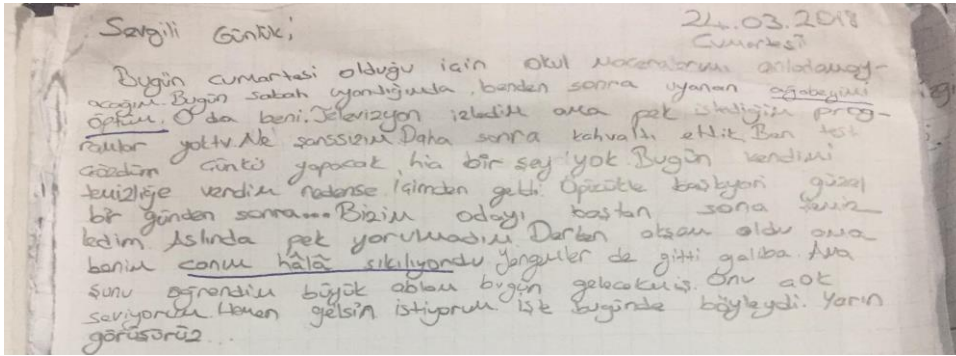 Sevgili Günlük; 24.03.2018
Cumartesi
Bugün cumartesi olduğu için okul maceralarımı anlatamay-
acağım. Bugün sabah uyandığımda, benden sonra uyanan ağabeyimi
öptüm. O da beni. Televizyon izledim ama pek istediğim prog-
ramlar yoktu. Ne şanssızım. Daha sonra kahvaltı ettik. Ben test
çözdüm Günkü yapacak hia bir şey yok. Bugün kendimi
temizliğe verdim nedense içimden geldi. Öpücükle başlayan güzel
bir günden sonra... Bizim odayı baştan sona temiz
ledim. Aslında pek yorulmadım. Derken akşam oldu ama
benim canım hâlâ sıkılıyordu. Yengemler de gitti galiba. Ama
şunu öğrendim büyük ablam bugün gelecekmiş. Onu çok
seviyorum. Hemen gelsin istiyorum. İşte bugünde böyleydi. Yarın
görüşürüz...